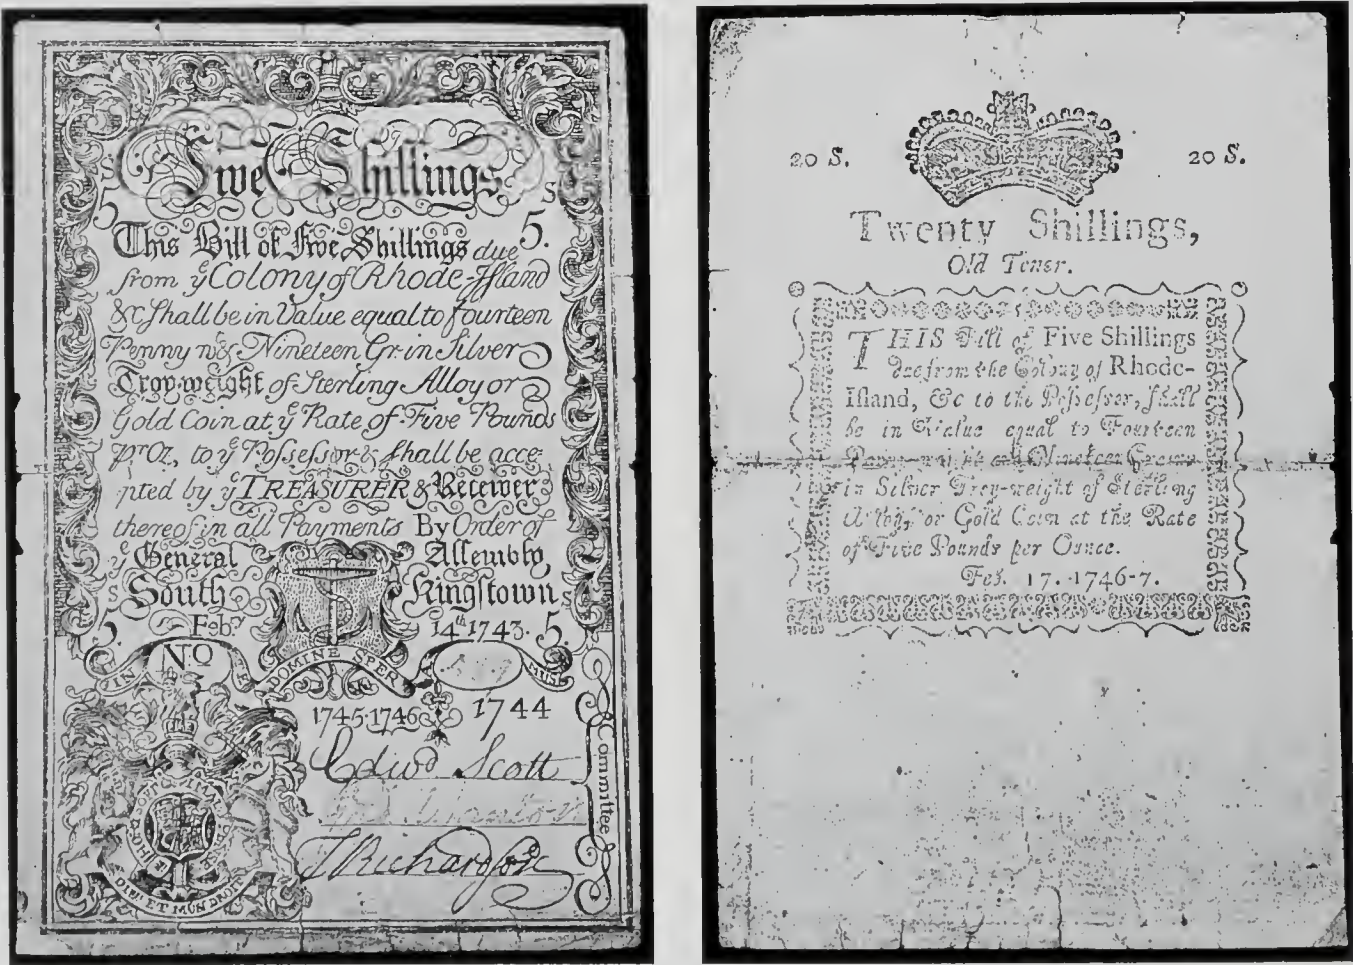 Five Shillings
S
S
5
5.
This Bill of Five Shillings due
from yᵉ Colony of Rhode-Iſland
&c ſhall be in Value equal to fourteen
Penny wt & Nineteen Gr in Silver
Troy-weight of Sterling Alloy or
Gold Coin at yᵉ Rate of Five Pounds
pr Oz, to yᵉ Poſseſsor & ſhall be acce-
pted by yᵉ TREASURER & Receiver
thereof in all Payments By Order of
yᵉ General Aſſembly,
S South Kingſtown S
5 Febʳʸ 14ᵗʰ 1743. 5.
IN TE DOMINE SPERAMUS
Nº
1745·1746 1744
Edwᵈ Scott
T Richardſon
Committee
HONI SOIT QUI MAL
DIEU ET MON DROIT
20 S. 20 S.
Twenty Shillings,
Old Tenor.
THIS Bill of Five Shillings
due from the Colony of Rhode-
Iſland, &c to the Poſſeſſor, ſhall
be in Value equal to Fourteen
Penny-weight and Nineteen Grains
in Silver Troy-weight of Sterling
Alloy, or Gold Coin at the Rate
of Five Pounds per Ounce.
Feb. 17. 1746-7.